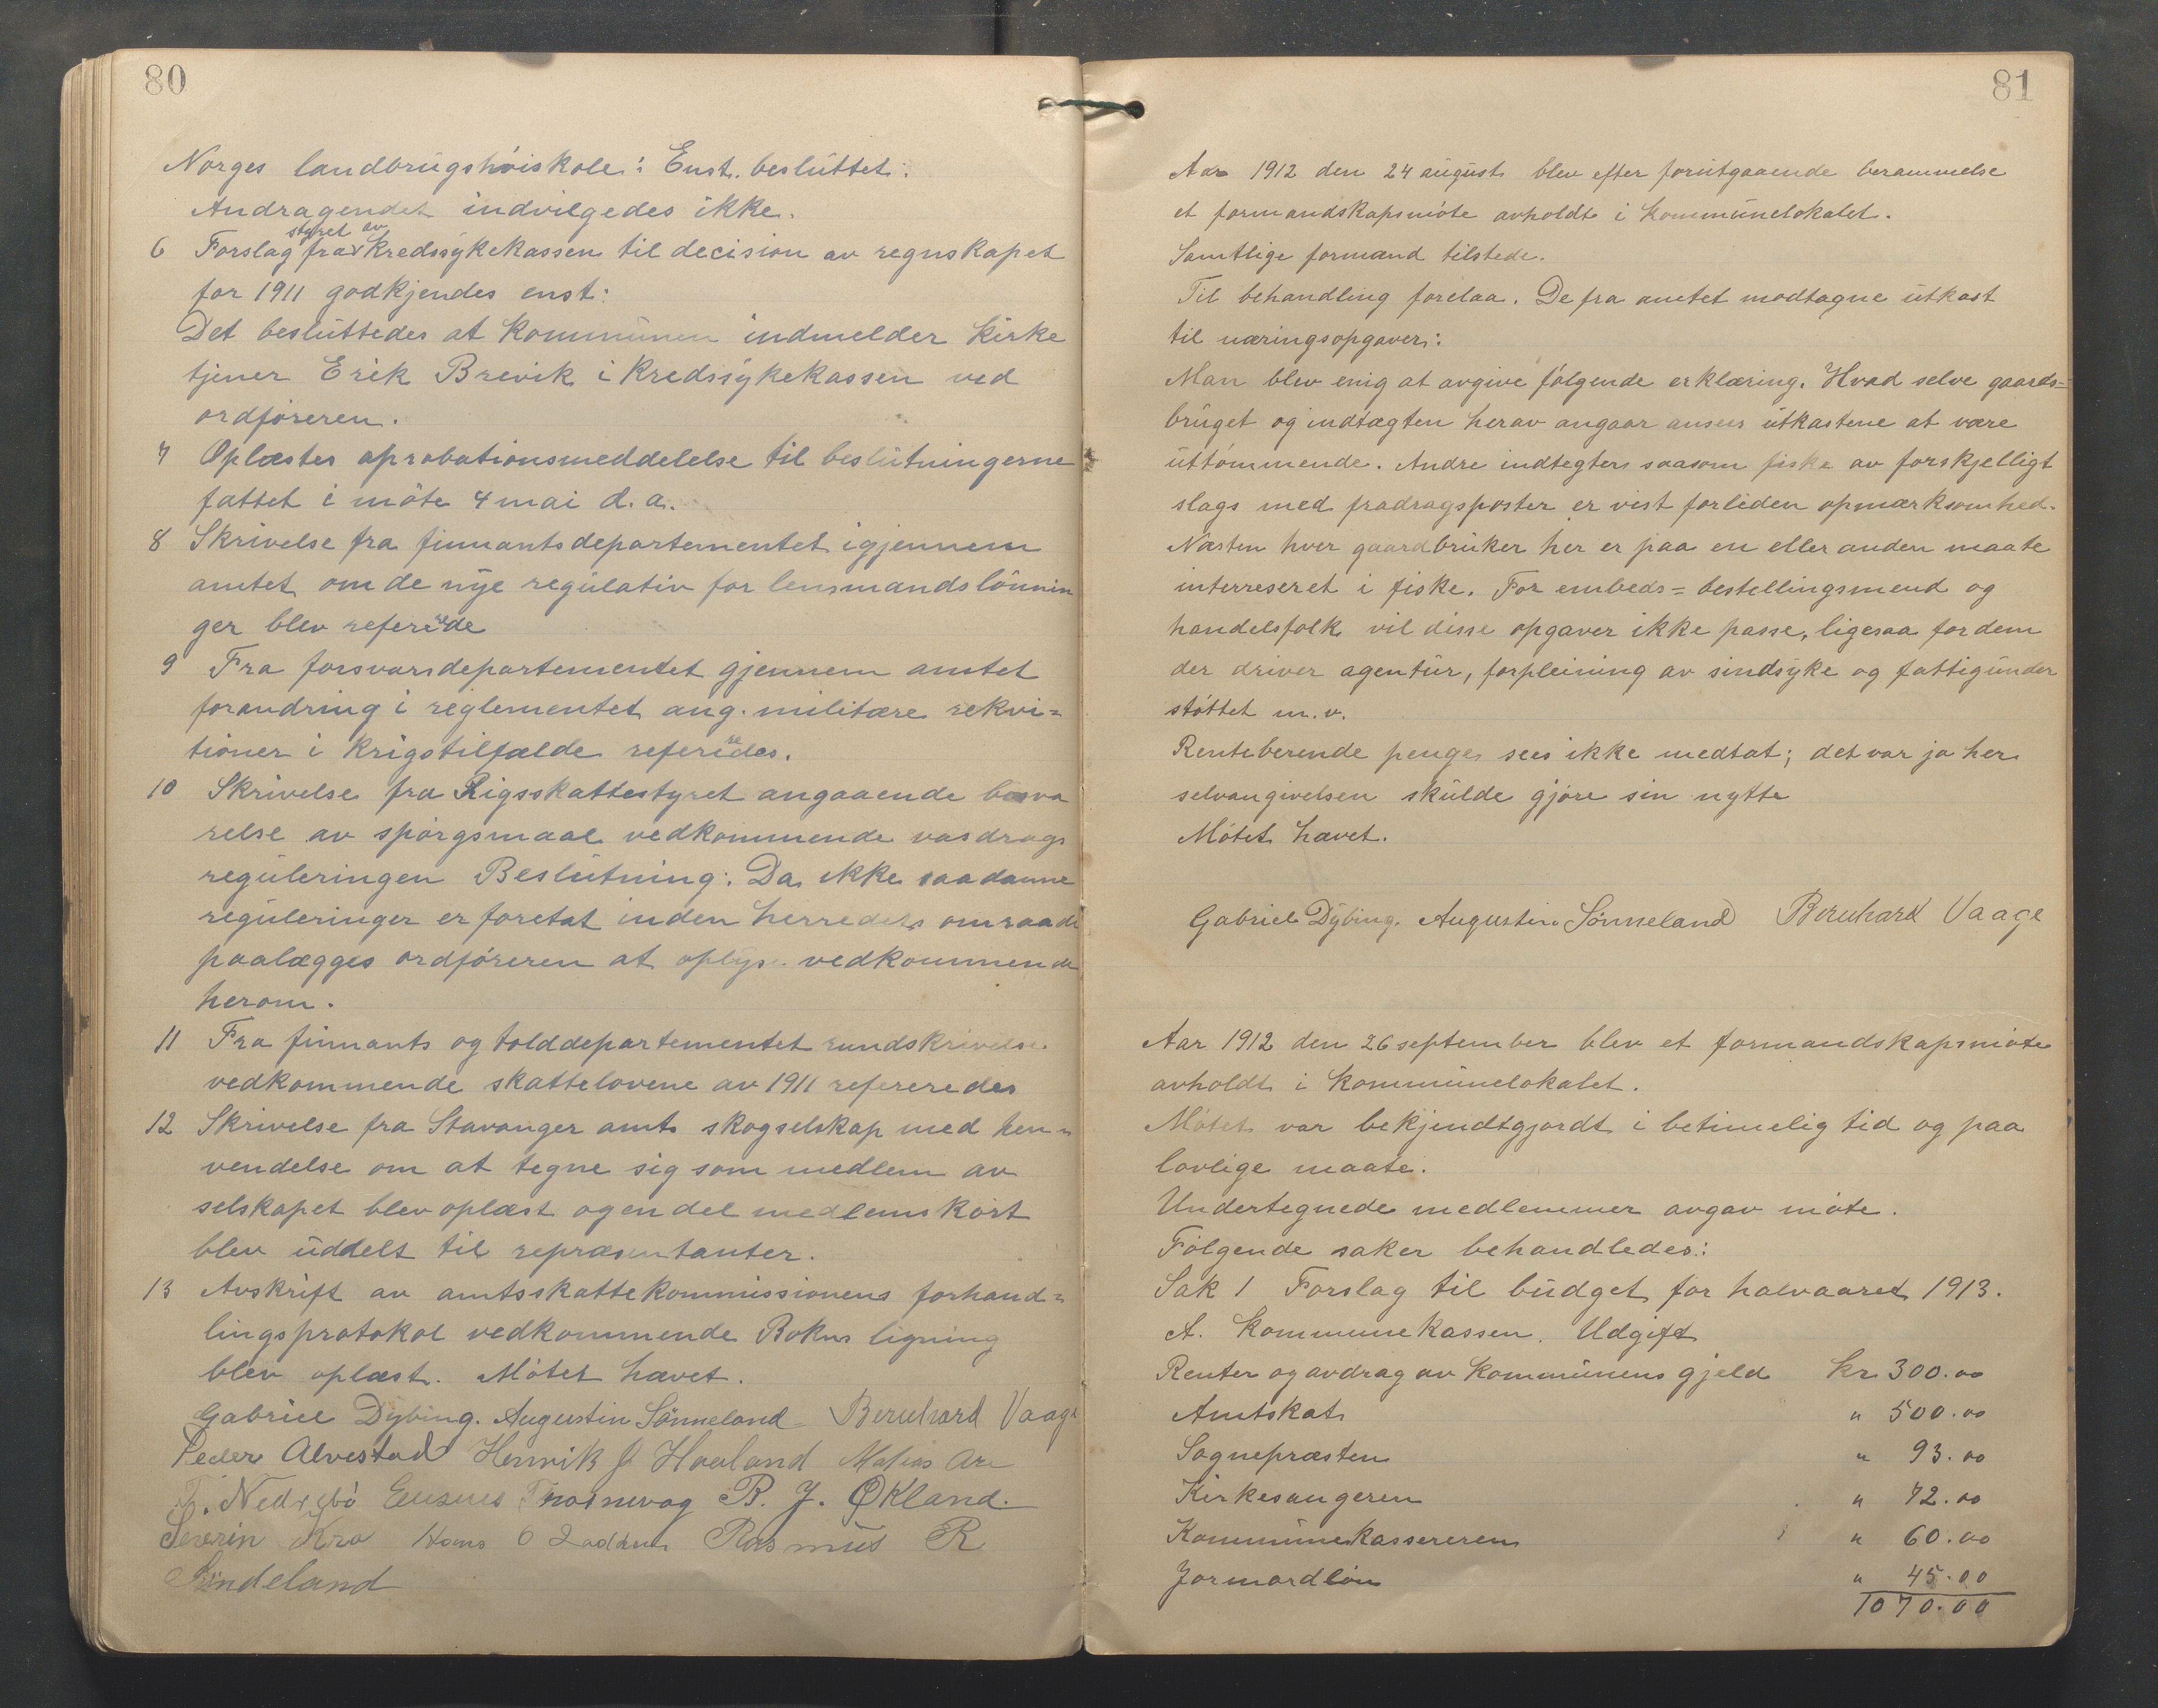 80
Norges landbrugshøiskole: Enst. besluttet:
Andragendet indvilgedes ikke.
styret av
6 Forslag fra kredssykekassen til decision av regnskapet
for 1911 godkjendes enst:
Det besluttedes at kommunen indmelder kirke
tjener Erik Brevik i kredssykekassen ved
ordføreren.
7 Oplæstes aprobationsmeddelelse til beslutningerne
fattet i møte 4 mai d.a.
8 Skrivelse fra finnantsdepartementet igjennem
amtet om de nye regulativ for lensmandslønnin
ger blev refererede
9 Fra forsvarsdepartementet gjennem amtet
forandring i reglementet ang. militære rekvi=
tioner i krigstilfælde refereredes.
10 Skrivelse fra Rigsskattestyret angaaende besva
relse av spørgsmaal vedkommende vasdrags
reguleringen Beslutning: Da ikke saadanne
reguleringer er foretat inden herredets omraade
paalægges ordføreren at oplyse vedkommende
herom.
11 Fra finnants og tolddepartementet rundskrivelse
vedkommende skattelovene av 1911 refereredes
12 Skrivelse fra Stavanger amts skogselskap med hen=
vendelse om at tegne sig som medlem av
selskapet blev oplæst og en del medlemskort
blev uddelt til repræsentanter.
13 Avskrift av amtsskattekommissionens forhand=
lingsprotokol vedkommende Bokns ligning
blev oplæst. Møtet hævet.
Gabriel Dybing. Augustin Sønneland Bernhard Vaage
Peder Alvestad Henrik J Haaland Matias
T. Nedrebø B. J. Økland.
Severin Kro Hans O Rasmus R
Sundeland
81
Aar 1912 den 24 august blev efter forutgaaende berammelse
et formandskapsmøte avholdt i kommunelokalet.
Samtlige formænd tilstede.
Til behandling forelaa. De fra amtet modtagne utkast
til næringsopgaver:
Man blev enig at avgive følgende erklæring. Hvad selve gaards=
bruget og indtægten herav angaar ansees utkastene at være
uttømmende. Andre indtegter saasom fiske av forskjelligt
slags med fradragsposter er vist forliden opmærksomhed.
Næsten hver gaardbruker her er paa en eller anden maate
interreseret i fiske. For embeds= bestellingsmend og
handelsfolk vil disse opgaver ikke passe, ligesaa for dem
der driver agentur, forpleining av sindsyke og fattigunder
støttet m.v.
Renteberende penger sees ikke medtat; det var jo her
selvangivelsen skulde gjøre sin nytte
Møtet hævet.
Gabriel Dybing. Augustin Sønneland Bernhard Vaage
Aar 1912 den 26 september blev et formandskapsmøte
avholdt i kommunelokalet.
Møtet var bekjendtgjordt i betimelig tid og paa
lovlige maate.
Undertegnede medlemmer avgav møte.
Følgende saker behandledes:
Sak 1 Forslag til budget for halvaaret 1913.
A. Kommunekassen. Udgift
Renter og avdrag av kommunens gjeld kr 300.00
Amtskat " 500.00
Sognepræsten " 93.00
Kirkesangeren " 72.00
Kommunekassereren " 60.00
Jormordløn " 45.00
1070.00